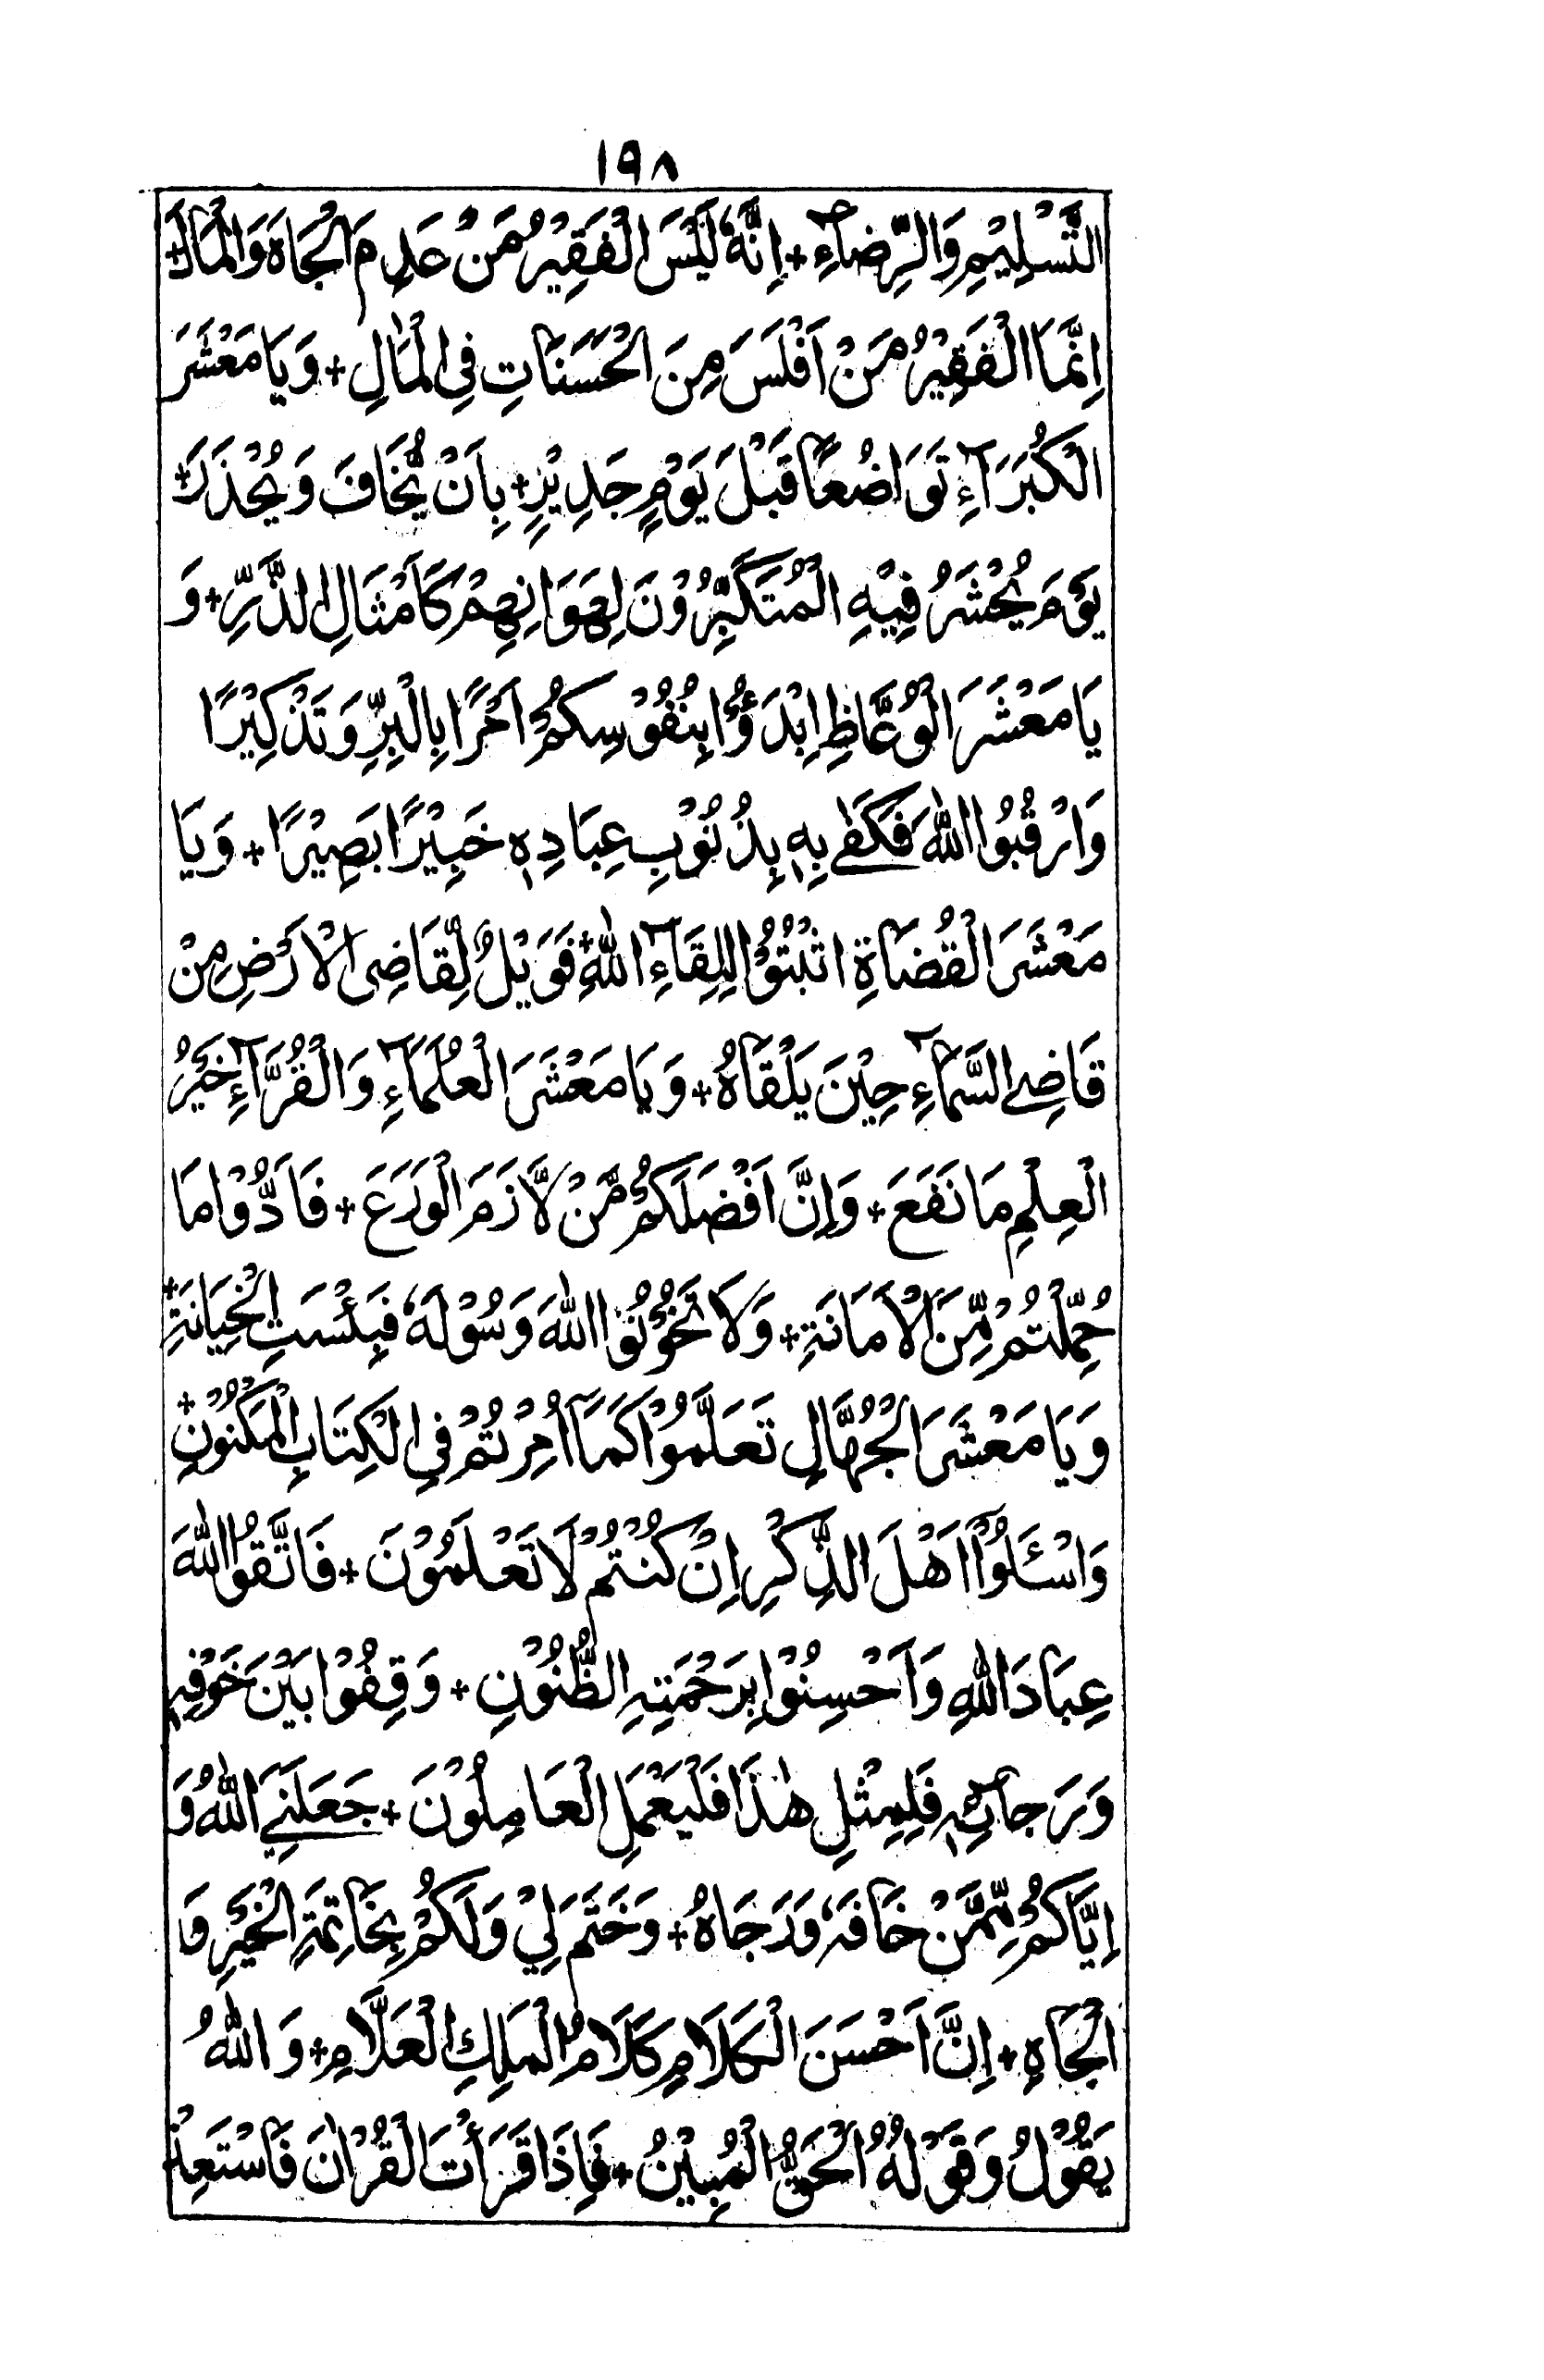 ١٩٨
التَّسْلِيْمِ وَالرِّضَآءِ + اِنَّهٗ لَيْسَ الْفَقِيْرُ مَنْ عَدِمَ الْجَاهَ وَالْمَالَ +
اِنَّمَا الْفَقِيْرُ مَنْ اَفْلَسَ مِنَ الْحَسَنَاتِ فِي الْمَاٰلِ + وَيَا مَعْشَرَ
الْكُبَرَآءِ تَوَاضُعًا قَبْلَ يَوْمٍ جَدِيْرٍ + بِاَنْ يُّخَافَ وَيُحْذَرَ +
يَوْمَ يُحْشَرُ فِيْهِ الْمُتَكَبِّرُوْنَ لِهَوَانِهِمْ كَاَمْثَالِ الذَّرِّ + وَ
يَا مَعْشَرَ الْوُعَّاظِ اِبْدَؤُا بِنُفُوْسِكُمْ اَمْرًا بِالْبِرِّ وَتَذْكِيْرًا
وَارْقُبُوا اللّٰهَ فَكَفٰى بِهٖ بِذُنُوْبِ عِبَادِهٖ خَبِيْرًا بَصِيْرًا + وَيَا
مَعْشَرَ الْقُضَاةِ اثْبُتُوْا لِلِقَآءِ اللّٰهِ + فَوَيْلٌ لِّقَاضِى الْاَرْضِ مِنْ
قَاضِى السَّمَآءِ حِيْنَ يَلْقَاهُ + وَيَا مَعْشَرَ الْعُلَمَآءِ وَالْقُرَّآءِ خَيْرُ
الْعِلْمِ مَا نَفَعَ + وَاِنَّ اَفْضَلَكُمْ مَّنْ لَّازَمَ الْوَرَعَ + فَاَدُّوْا مَا
حُمِّلْتُمْ مِّنَ الْاَمَانَةِ + وَلَا تَخُوْنُوا اللّٰهَ وَرَسُوْلَهٗ فَبِئْسَتِ الْخِيَانَةِ +
وَيَا مَعْشَرَ الْجُهَّالِ تَعَلَّمُوْا كَمَآ اُمِرْتُمْ فِي الْكِتَابِ الْمَكْنُوْنِ +
وَاسْئَلُوْٓا اَهْلَ الذِّكْرِ اِنْ كُنْتُمْ لَا تَعْلَمُوْنَ + فَاتَّقُوا اللّٰهَ
عِبَادَ اللّٰهِ وَاَحْسِنُوْا بِرَحْمَتِهِ الظُّنُوْنِ + وَقِفُوْا بَيْنَ خَوْفِهٖ
وَرَجَآئِهٖ فَلِمِثْلِ هٰذَا فَلْيَعْمَلِ الْعَامِلُوْنَ + جَعَلَنِيَ اللّٰهُ وَ
اِيَّاكُمْ مِّمَّنْ خَافَهٗ وَرَجَاهُ + وَخَتَمَ لِيْ وَلَكُمْ بِخَاتِمَةِ الْخَيْرِ وَ
الْجَاهِ + اِنَّ اَحْسَنَ الْكَلَامِ كَلَامُ الْمَلِكِ الْعَلَّامِ + وَاللّٰهُ
يَقُوْلُ وَقَوْلُهُ الْحَقُّ الْمُبِيْنُ + فَاِذَا قَرَأْتَ الْقُرْاٰنَ فَاسْتَعِذْ